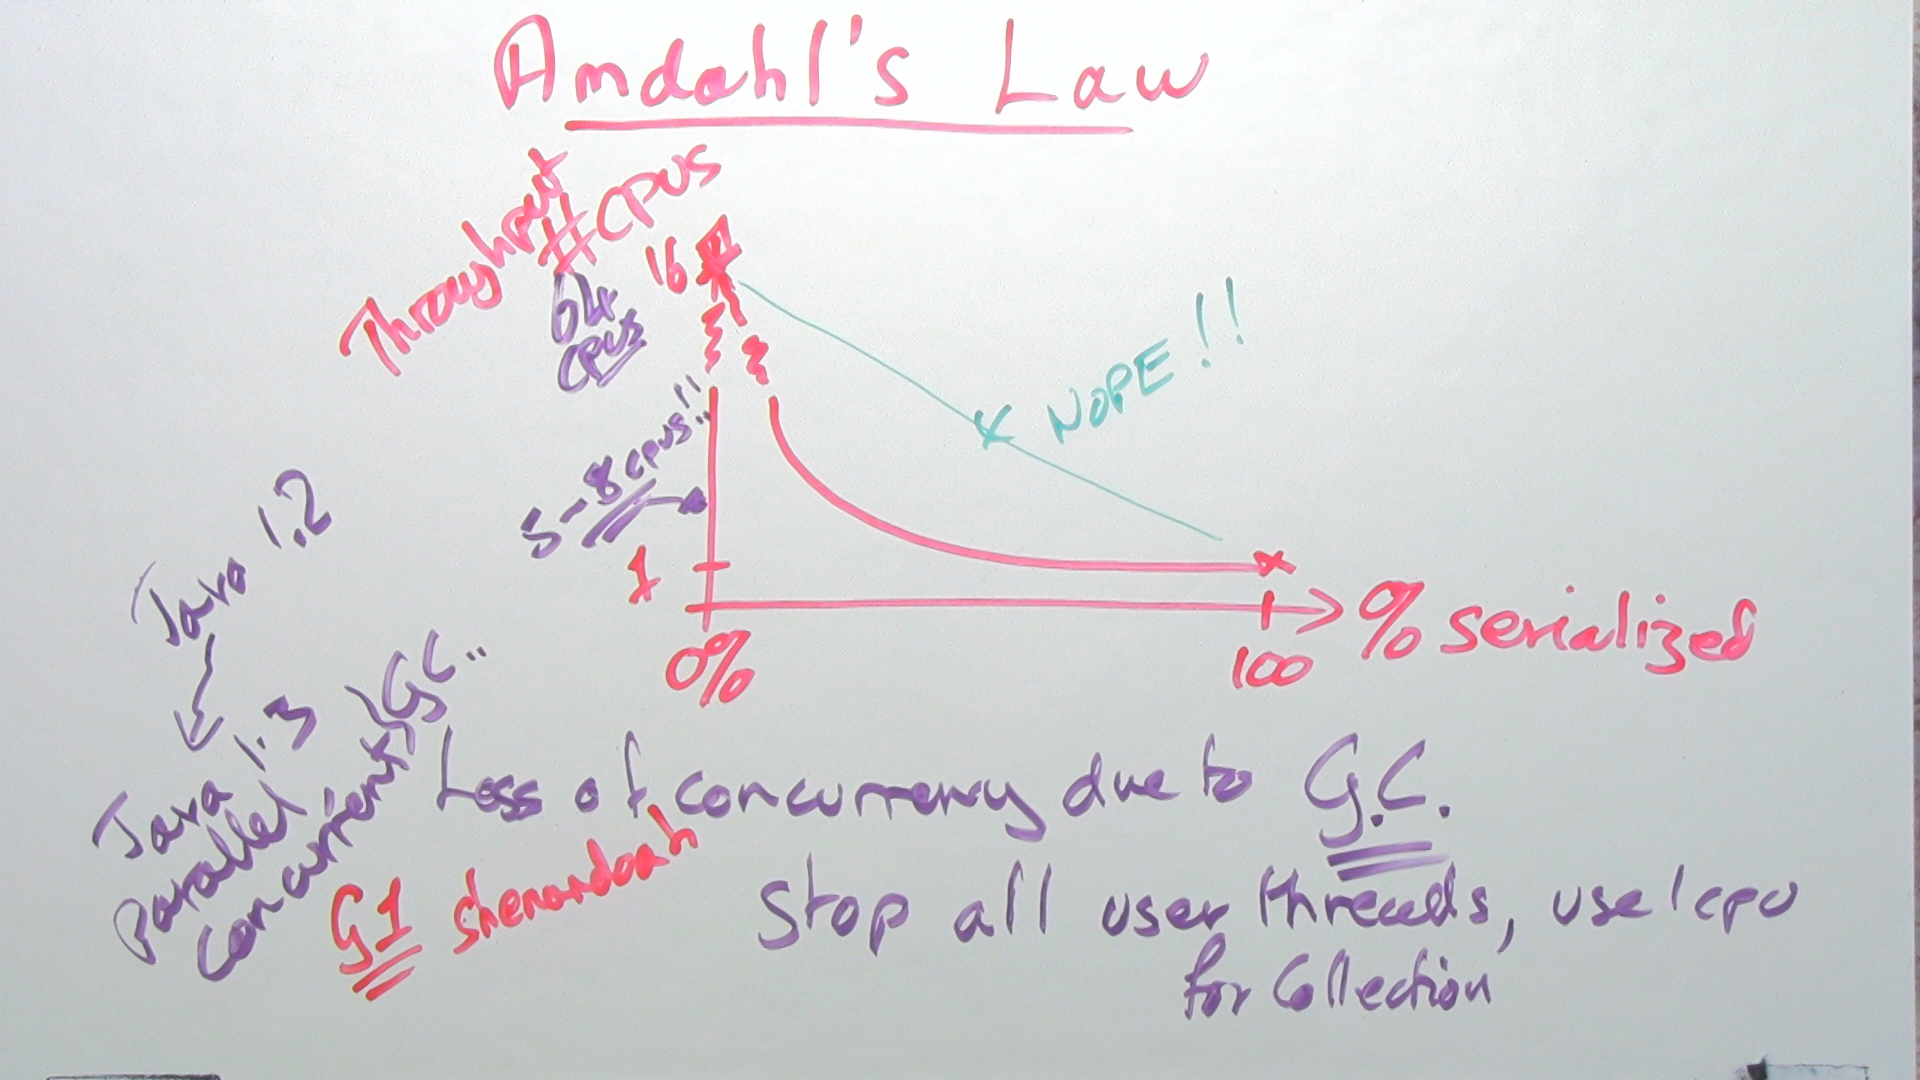 Amdahl's Law
Throughput
#CPUS
64
CPUS
16
NOPE!!
5-8 CPUS!!
1
0%
100
% serialized
Java 1.2
Java 1.3
Parallel,
concurrent) GC..
G1 shenandoah
Loss of concurrency due to G.C.
Stop all user threads, use 1 cpu
for Collection